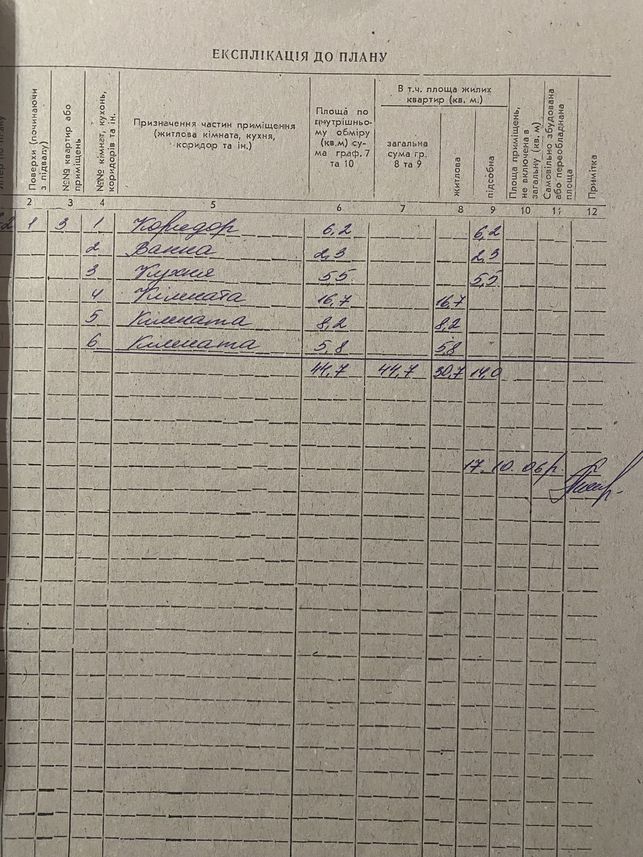 ЕКСПЛІКАЦІЯ ДО ПЛАНУ
Поверхи (починаючи з підвалу)
№№ квартир або приміщень
№№ кімнат, кухонь, коридорів та ін.
Призначення частин приміщення
(житлова кімната, кухня,
коридор та ін.)
Площа по
внутрішньо-
му обміру
(кв.м) су-
ма граф. 7
та 10
В т.ч. площа жилих
квартир (кв. м.)
загальна
сума гр.
8 та 9
житлова
підсобна
Площа приміщень,
не включена в
загальну (кв. м)
Самовільно збудована
або переобладнана
площа
Примітка
2 3 4 5 6 7 8 9 10 11 12
1 3 1 Коридор 6,2 6,2
2 Ванна 2,3 2,3
3 Кухня 5,5 5,5
4 Кімната 16,7 16,7
5 Кімната 8,2 8,2
6 Кімната 5,8 5,8
44,7 44,7 30,7 14,0
17.10.06р.